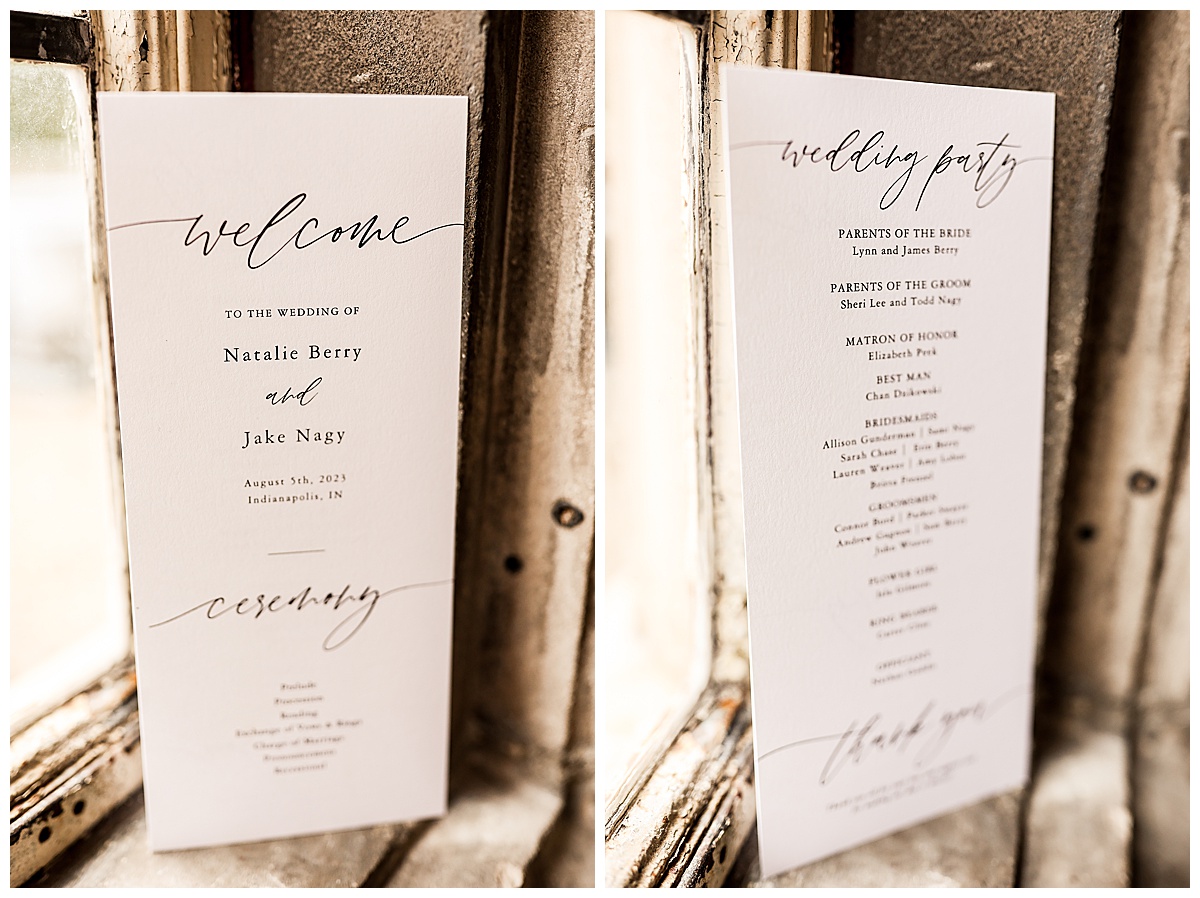 welcome
TO THE WEDDING OF
Natalie Berry
and
Jake Nagy
August 5th, 2023
Indianapolis, IN
ceremony
Prelude
Procession
Reading
Exchange of Vows & Rings
Charge of Marriage
Pronouncement
Recessional
wedding party
PARENTS OF THE BRIDE
Lynn and James Berry
PARENTS OF THE GROOM
Sheri Lee and Todd Nagy
MATRON OF HONOR
Elizabeth Peek
BEST MAN
Chan Daikowski
BRIDESMAIDS
Allison Gunderman |
Sarah Chase | Erin Berry
Lauren Weaver | Amy
GROOMSMEN
Connor Bord | Parker
Andrew Gagnon | Sean Berry
John Weaver
FLOWER GIRL
RING BEARER
OFFICIANT
thank you